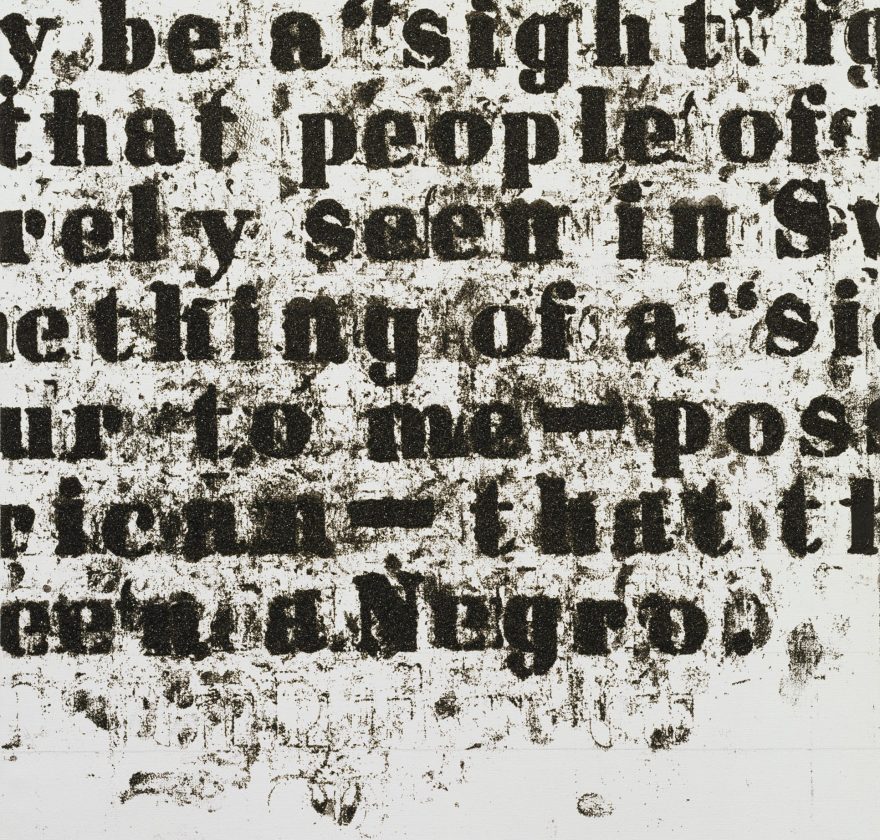 y be a “sight”
that people of
rely seen in S
ething of a “si
ur to me—poss
rican—that th
een a Negro.